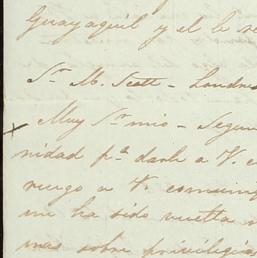 Guayaquil y el b se
Sr. M. Scott - Londre
x Muy Sr mio - Segun
nidad pa. darle a V. c
ruego a V. comuniq
me ha sido vuelta
mas sobre privilegio